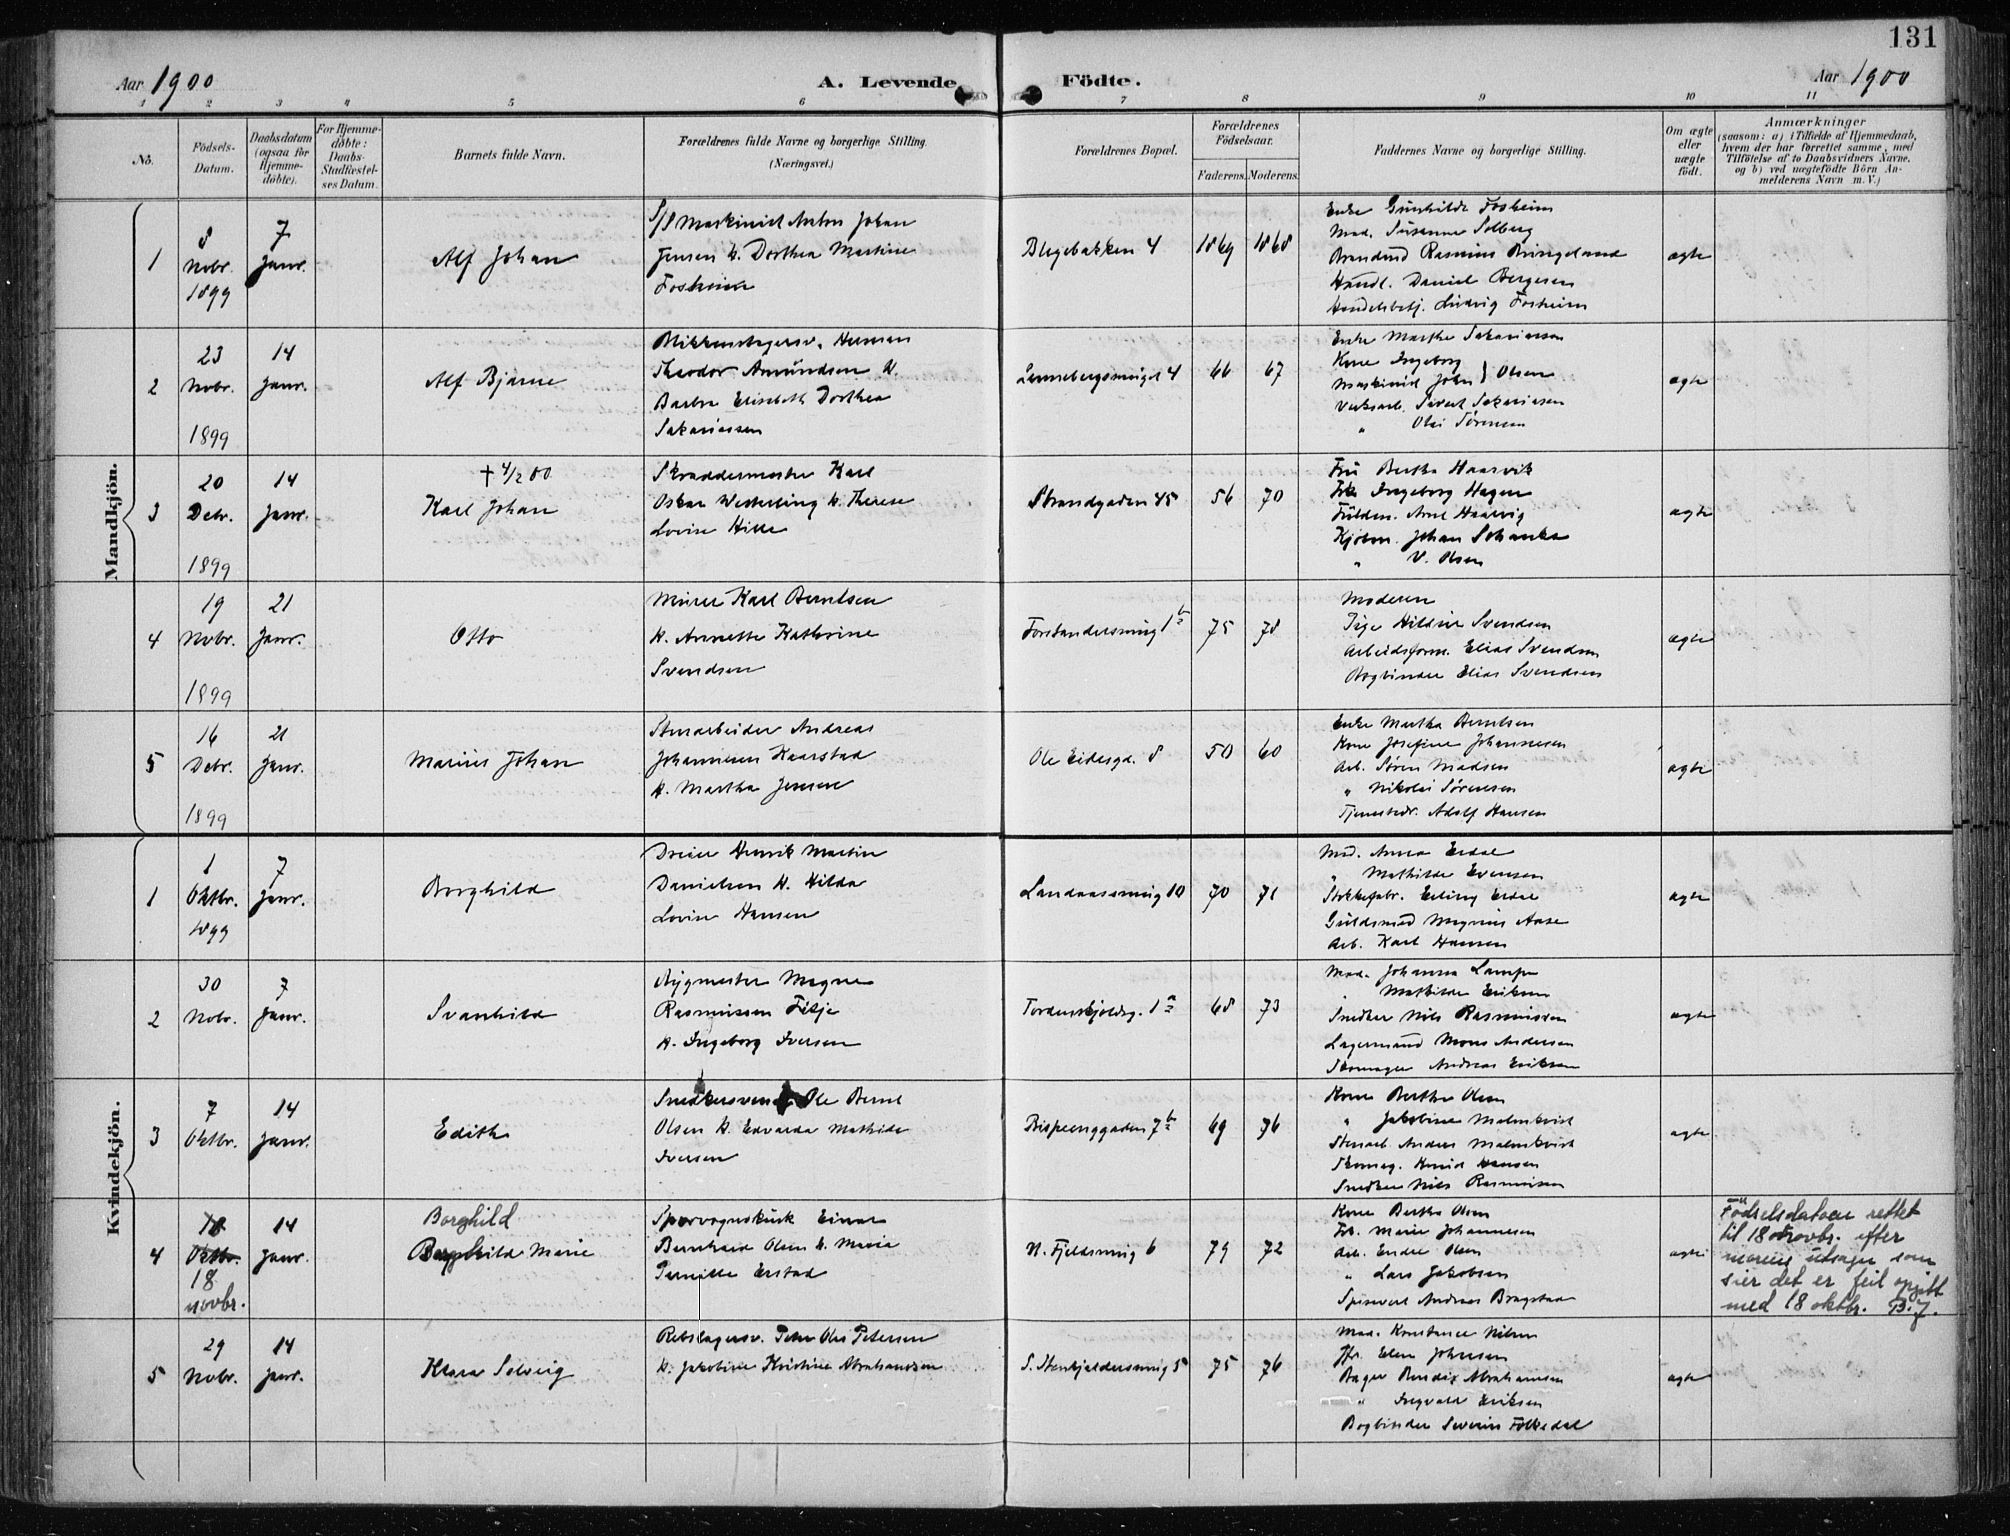 131
Aar 1900
A. Levende Födte.
Aar 1900
1 2 3 4 5 6 7 8 9 10 11
No.
Födsels-Datum.
Daabsdatum (ogsaa for Hjemmedøbte).
For Hjemmedøbte: Daabs-Stadfæstelses Datum.
Barnets fulde Navn.
Forældrenes fulde Navne og borgerlige Stilling.
(Næringsvei.)
Forældrenes Bopæl.
Forældrenes Födselsaar.
Faderens. Moderens.
Faddernes Navne og borgerlige Stilling.
Om ægte eller uægte födt.
Anmærkninger
(saasom: a) i Tilfælde af Hjemmedaab, hvem der har forrettet samme, med Tilföielse af to Daabsvidners Navne, og b) ved uægtefödte Börn Anmelderens Navn m. V.)
Mandkjön.
1
8 Novbr. 1899
7 Janr.
Alf Johan
S/S Maskinist Anton Johan
Jensen h. Dorthea Martine
Fosheim
Blegebakken 4
1869 1868
Enke Gunhilde Fosheim
Mad. Susanne Solberg
Brandmd Rasmus Bringeland
Handl. Daniel Bergesen
Handelsbetj. Ludvig Fosheim
ægte
2
23 Novbr. 1899
14 Janr.
Alf Bjarne
Blikkenslagersv. Herman
Theodor Amundsen h.
Barbra Elisabeth Dorthea
Sakariassen
Lennebergsmuget 4
66 67
Enke Marthe Sakariassen
Kone Ingeborg
Maskinist John } Olsen
Verksarb. Sivert Sakariasen
" Olai Sörensen
ægte
3
20 Debr. 1899
14 Janr.
† 4/2 00
Karl Johan
Skræddermester Karl
Oskar Westerling h. Therese
Lovise Hille
Strandgaden 45
56 70
Fru Bertha Haarvik
Frk. Ingeborg Hagen
Fuldm. Arne Haarvig
Kjöbm. Johan Schanke
" V. Olsen
ægte
4
19 Novbr. 1899
21 Janr.
Otto
Murer Karl Berntsen
h. Annette Kathrine
Svendsen
Forstandersmug 1 b
75 78
Moderen
Pige Hildur Svendsen
Arbeidsform. Elias Svendsen
Bogbinder Elias Svendsen
ægte
5
16 Debr. 1899
21 Janr.
Marius Johan
Stenarbeider Andreas
Johannesen Kaarstad
h. Martha Jensen
Ole Eidesgd. 8
50 60
Enke Martha Berntsen
Kone Josefine Johannesen
Arb. Sören Madsen
" Nikolai Sörensen
Tjenestedr. Adolf Hansen
ægte
Kvindekjön.
1
1 Oktbr. 1899
7 Janr.
Borghild
Dreier Henrik Martin
Danielsen h. Hilda
Lovise Hansen
Landaassmug 10
70 71
Mad. Anna Erdal
" Mathilde Evensen
Stokkefabr. Erling Erdal
Guldsmed Magnus Aase
Arb. Karl Hansen
ægte
2
30 Novbr.
7 Janr.
Svanhild
Bygmester Magne
Rasmussen Fitje
h. Ingeborg Iversen
Tordenskjoldsg. 1 a
68 73
Mad. Johanna Lampe
" Mathilde Eriksen
Snedker Nils Rasmussen
Lagermand Mons Andersen
Skomager Andreas Eriksen
ægte
3
7 Oktbr.
14 Janr.
Edith
Snedkersvend Ole Bernt
Olsen h. Edvarda Mathilde
Iversen
Bispeenggaden 7 b
69 76
Kone Berthe Olsen
" Jakobine Malmkvist
Stenarb. Anders Malmkvist
Skomag. Knud Hansen
Snedker Nils Rasmussen
ægte
4
18 Oktbr.
18 novbr.
14 Janr.
Borghild
Borghilda Marie
Sporvognskusk Einar
Bernhard Olsen h. Maria
Pernille Erstad
N. Fjeldsmug 6
79 72
Kone Bertha Olsen
Fr. Marie Johannesen
Arb. Endre Olsen
" Lars Jakobsen
Spisevert Andreas Brogstad
ægte
Födselsdatoen rettet
til 18 novbr. efter
morens utsagn som
sier det er feil opgitt
med 18 oktbr. B.J.
5
29 Novbr.
14 Janr.
Klara Solveig
Rebslagersv. Peter Olai Petersen
h. Jakobine Kristine Abrahamsen
S. Stenkjeldersmug 5
75 76
Mad. Konstance Nilsen
Jfr. Elen Johnsen
Bager Bendix Abrahamsen
" Ingvald Eriksen
Bogbinder Severin Folkedal
ægte